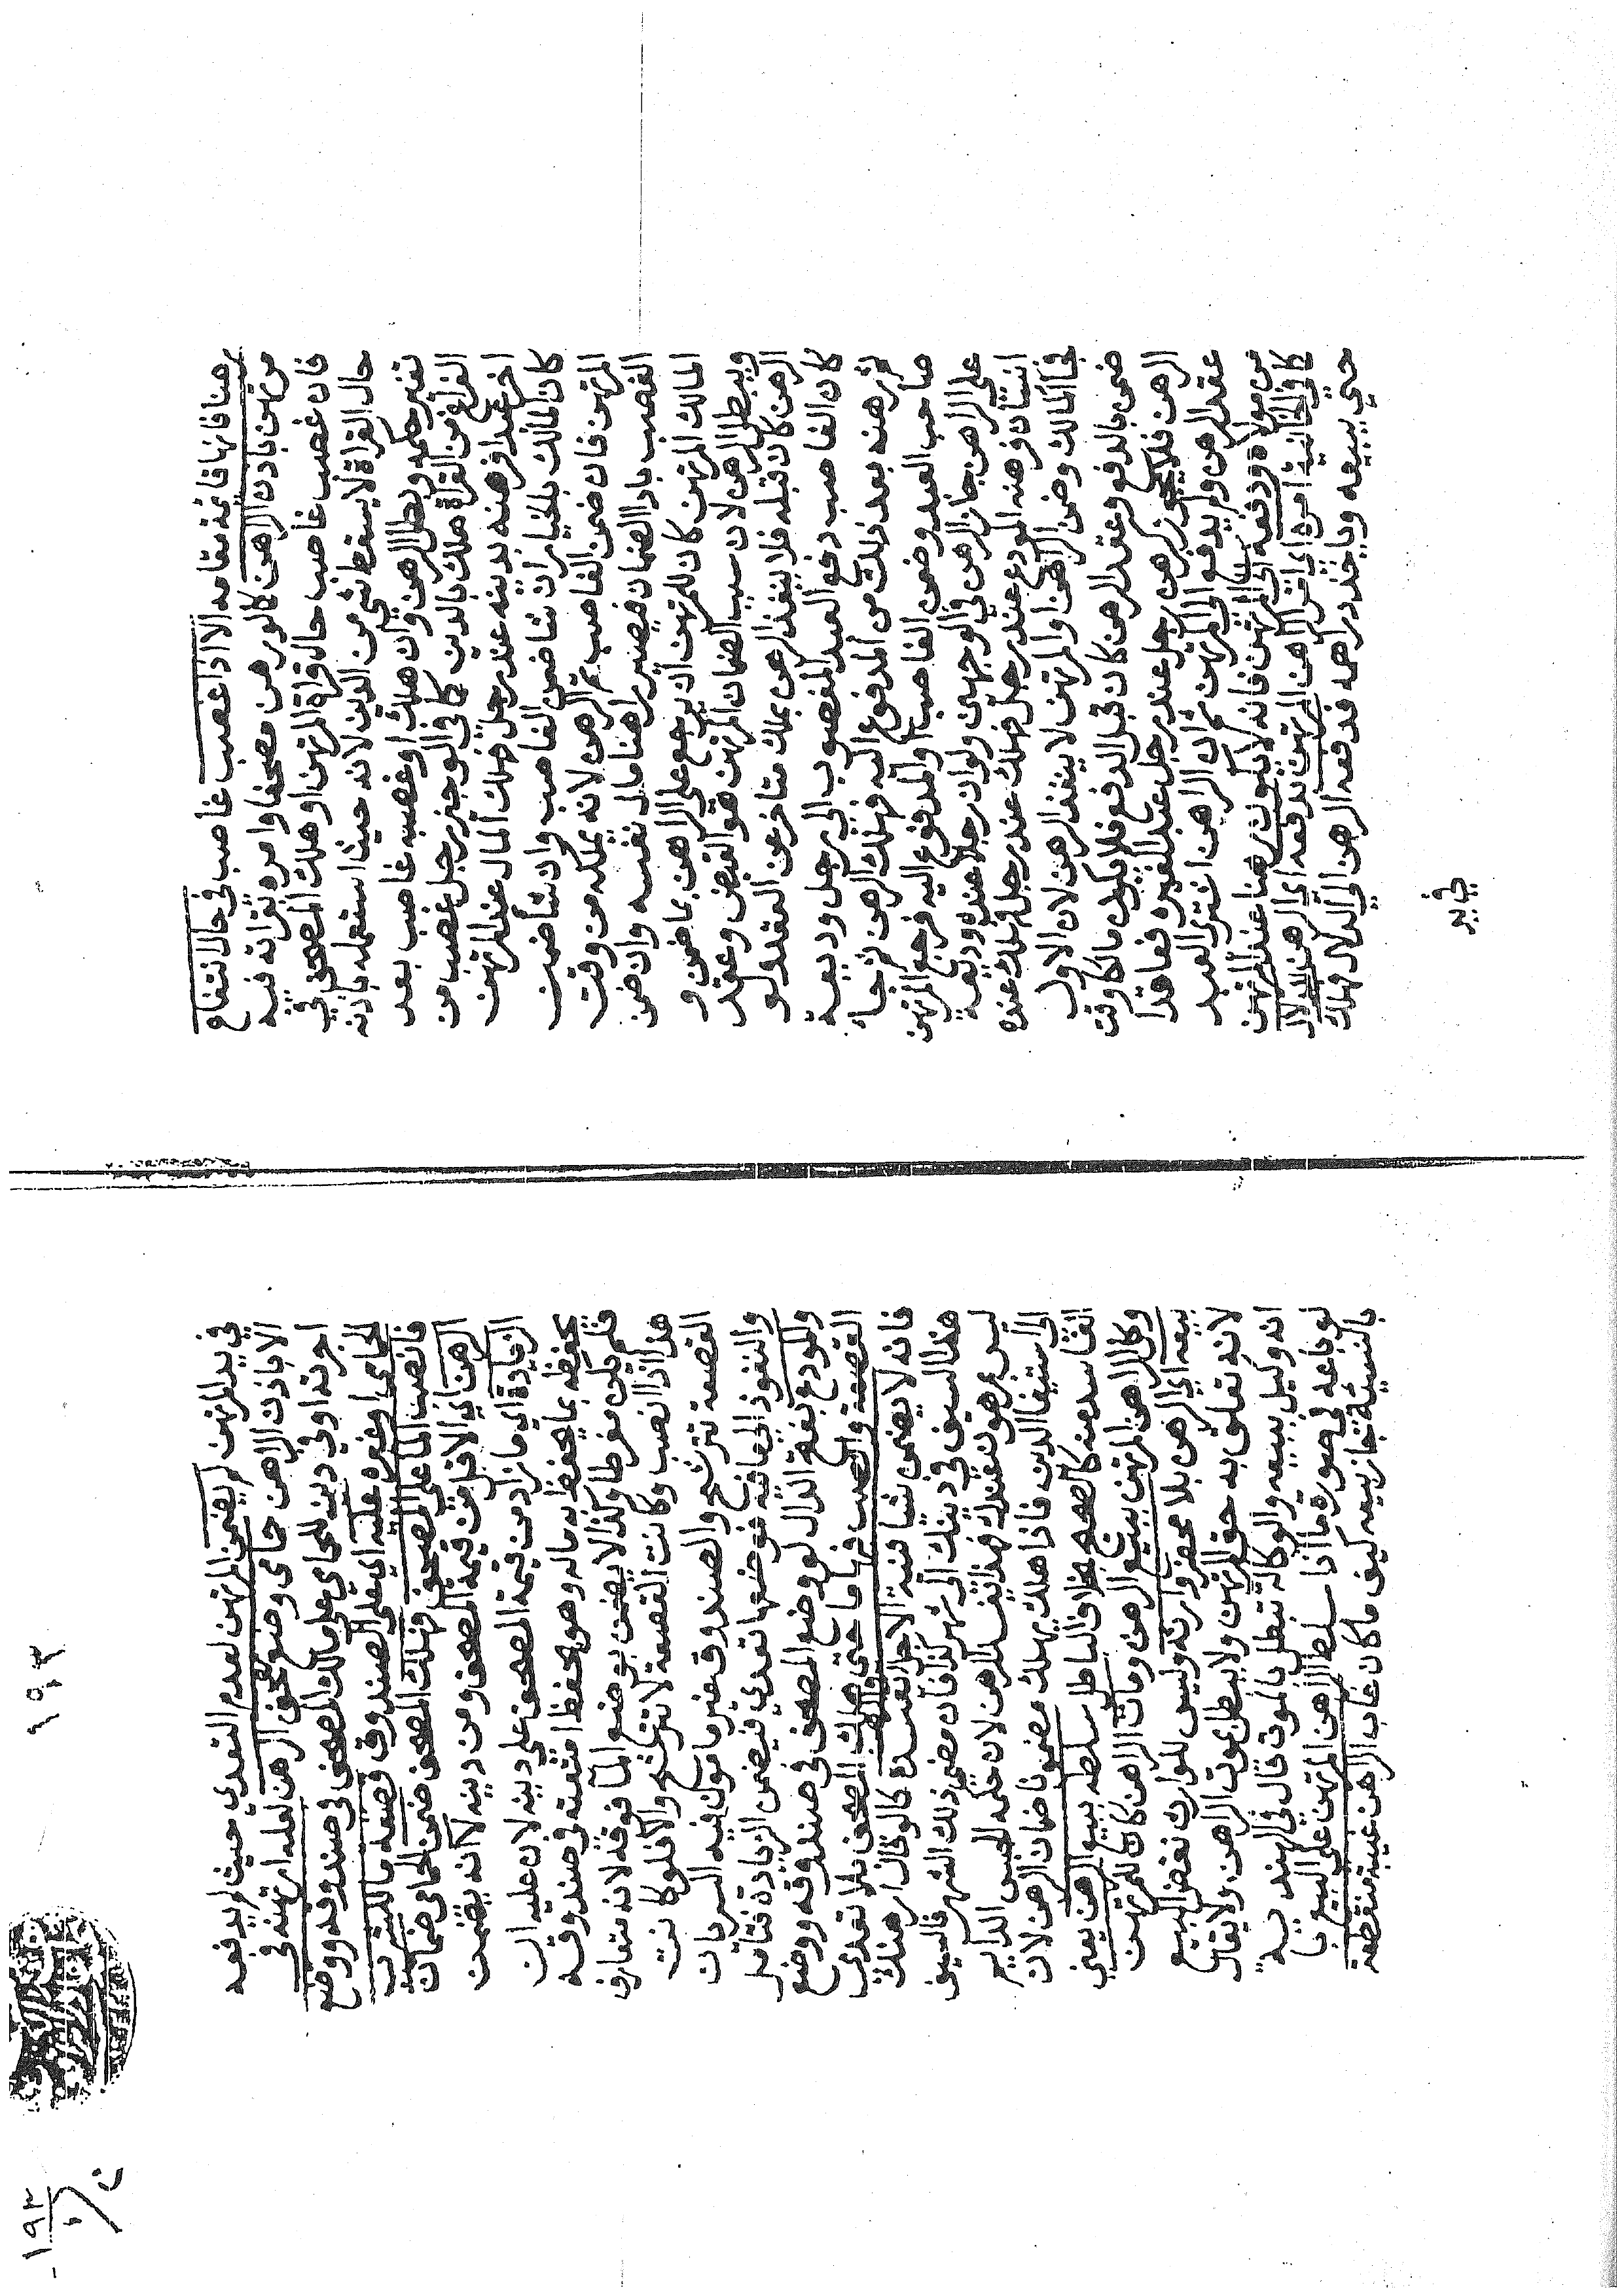 رهنا فانها قائمة مقامه الا اذا غصب غاصب في حال انتفاع
مرتهن باذن الراهن كما لو رهن مصحفا وامره بقراته فيه
فان غصب غاصب حال قراة المرتهن او هلك المصحف في
حال القراة لا يسقط شي من الدين لانه حينئذ استعمله باذنه
تغير حكمه وبطل الرهن وان هلك او غصبه غاصب بعد
الفراغ من القراة هلك بالدين كما في الوجيز رجل غصب من
اخر عبدا فرهنه بدينه عند رجل فهلك المال عند المرتهن
كان المالك بالخيار ان شا ضمن الغاصب وان شا ضمن
المرتهن فان ضمن الغاصب تم الرهن لانه يملكه من وقت
الغصب بادا الضمان فيصير راهنا مال نفسه وان ضمن
المالك المرتهن كان للمرتهن ان يرجع على الراهن بما ضمن و
ويبطل الرهن لان سبب الضمان المرتهن هو القبض وعقد
الرهن كان قبله فلا ينفذ الرهن بملك متاخر عن العقد ولو
كان الغاصب دفع العبد المغصوب الى رجل وديعة
ثم رهنه بعد ذلك من المدفوع اليه فهلك الرهن ثم جاء
صاحب العبد وضمن الغاصب او المدفوع اليه فرجع المرتهن
على الراهن جاز الرهن في الوجهين ولو ان رجلا عنده وديعة
انسان فرهنه المودع عند رجل فهلك عند رجل فهلك عنده
فجا المالك وضمن الراهن او المرتهن لا ينفذ الرهن لان الاول
ضمن بالدفع وعقد الرهن كان قبل الدفع فلا يكون مالكا وقت
الرهن فلا يجوز رهن رجل عند رجل عبد الغيره فعاقدا
عقد الرهن ولم يدفع الى المرتهن ثم ان الراهن اشترى العبد
من مولاه ودفعه الى المرتهن فانه لا يكون رهنا عند المرتهن
كما في الخانية امره اي امر الراهن المرتهن بدفعه اي الرهن للدلال
حتي يبيعه وياخذ دراهمه فدفعه الرهن الى الدلال فهلك
في يد
١٩٣
١٩٣
في يد المرتهن لم يضمن المرتهن لعدم التعدي حيث لم يدفعه
الا باذن الراهن حمامي وضع مصحف الرهن لعله ارتهنه في
اجرته او في دين للحمامي على مالك المصحف في صندوقه ووضع
الحمامي او غيره عليه اي على الصندوق قصعة ما للشرب
فانصب الما على المصحف فهلك المصحف ضمن الحمامي ضمان
الرهن اي الاقل من قيمة المصحف ومن دينه لا انه يضمن
الزيادة اي ما زاد من قيمة المصحف على دينه لان عليه ان
يحفظه بما يحفظ به ماله وهو يحفظ امتعته في صندوقه
فلم يكن مفرطا وكذا لا يضمن بوضع الما فوقه لانه متعارف
هذا اذا انصب وكانت القصعة لا تترشح والا فلو كانت
القصعة تترشح والصندوق غير مامون فيه السريان
والنفوذ الى ما فيه فوضعها تعدي فيضمن الزيادة فتامل
والمودع بفتح الدال لو وضع المصحف في صندوقه ووضع
القصعة وانصب فيها ما حتى هلك المصحف بلا تعدي
فانه لا يضمن شيا فيه الاجل يفسده كما لو قال ارهنتك
هذا السيف في دينك الى شهر كذا فان مضى ذلك الشهر فالسيف
ليس مرهون عندك فهذا يفسد الرهن لان حكمه الحبس الدايم
الى استيفا الدين فاذا هلك يهلك مضمونا ضمان الرهن لان
الفاسد منه كالصحيح بخلاف الباطل سلطه ببيع الرهن يعني
وكل الراهن المرتهن ببيع الرهن ومات الراهن كان للمرتهن
بيعه اي الرهن بلا محضر وارثه وليس للوارث نقض البيع
لانه تعلق به حق المرتهن ولا يبطل بموت الراهن ولا يقال
انه وكيل ببيعه والوكالة تبطل بالموت قال في الهندية
لو باعه في صورة ما اذا سلط الراهن المرتهن على البيع با
بالنسيئة جاز بيعه كيف ما كان غاب الراهن غيبة منقطعة